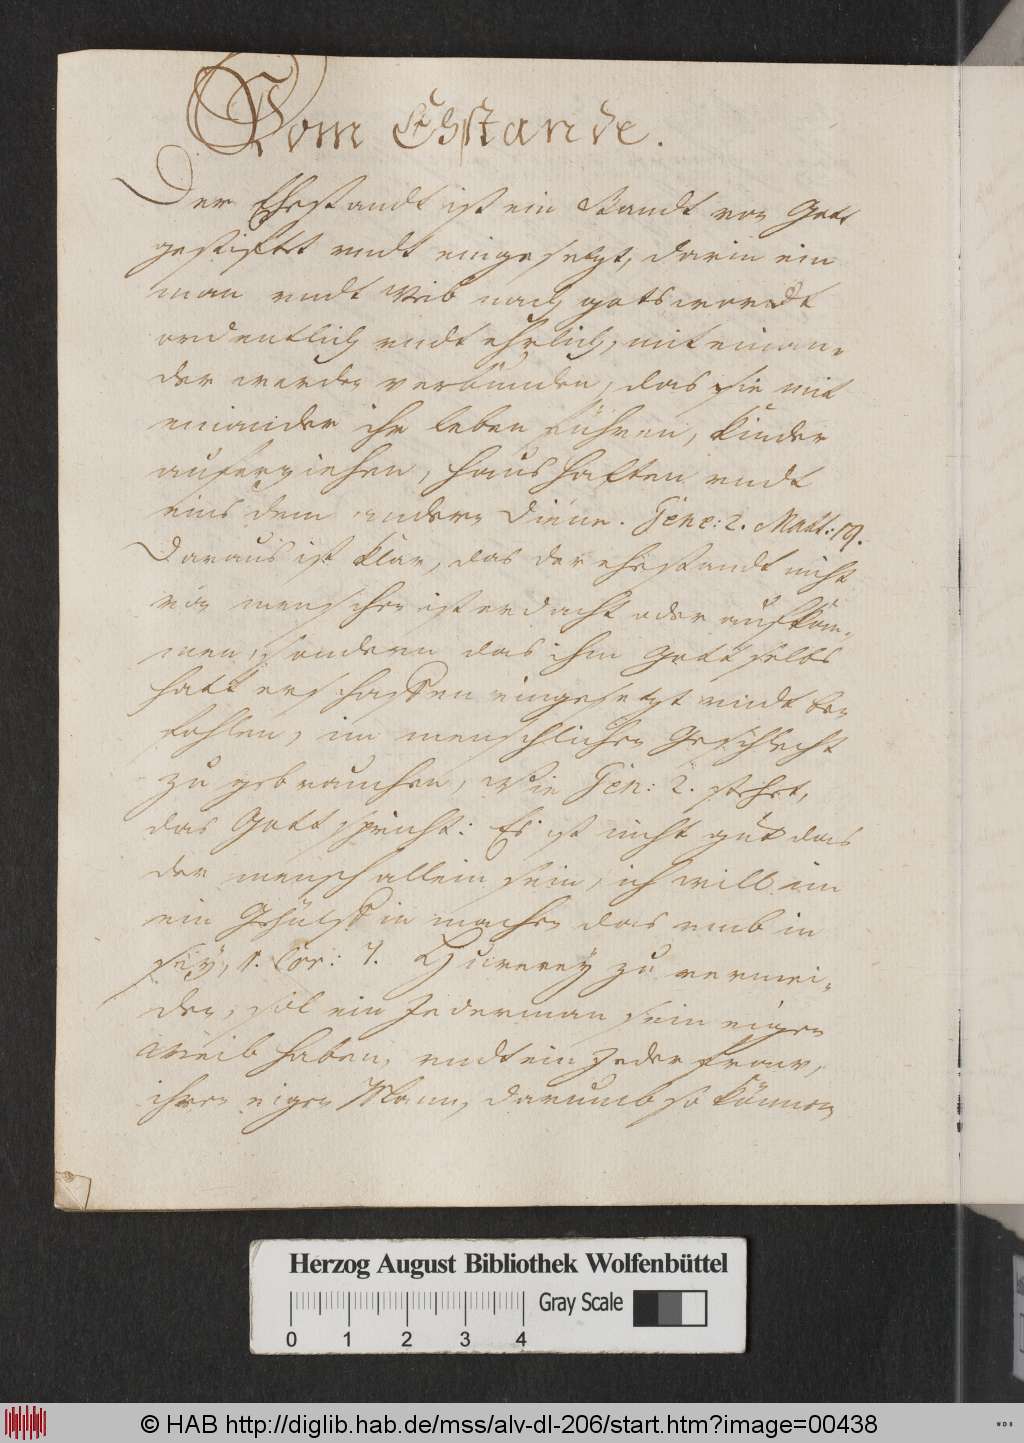 Vom Ehstande.
Der Ehestandt ist ein standt von Gott
gestifftet vndt eingesetzt, darin ein
man vndt Weib nach gots wordt
ordentlich vndt ehrlich, mit einan-
der werden verbunden, das sie mit
einander ihr leben führen, kinder
aufferziehen, haus halten vndt
eins dem andern diene. Gene: 2. Matt: 19.
Daraus ist klar, das der ehestandt nicht
von menschen ist erdacht oder aufkom-
men, sondern das ihn Gott selbs
hatt erschaffen eingesetzt vndt be-
fohlen, im menschlichen Geschlecht
zu gebrauchen, Wie Gen: 2. stehet,
das Gott spricht: Es ist nicht gut das
der mensch allein sein, ich will im
ein Gehülffin machen das vmb in
sey, 1. Cor: 7. Hurerey zu vermei-
den, sol ein Jederman sein eigen
Weib haben, vndt ein Jeder fraw,
ihren eigen Mann, darumb so können
Herzog August Bibliothek Wolfenbüttel
Gray Scale
0 1 2 3 4
© HAB http://diglib.hab.de/mss/alv-dl-206/start.htm?image=00438